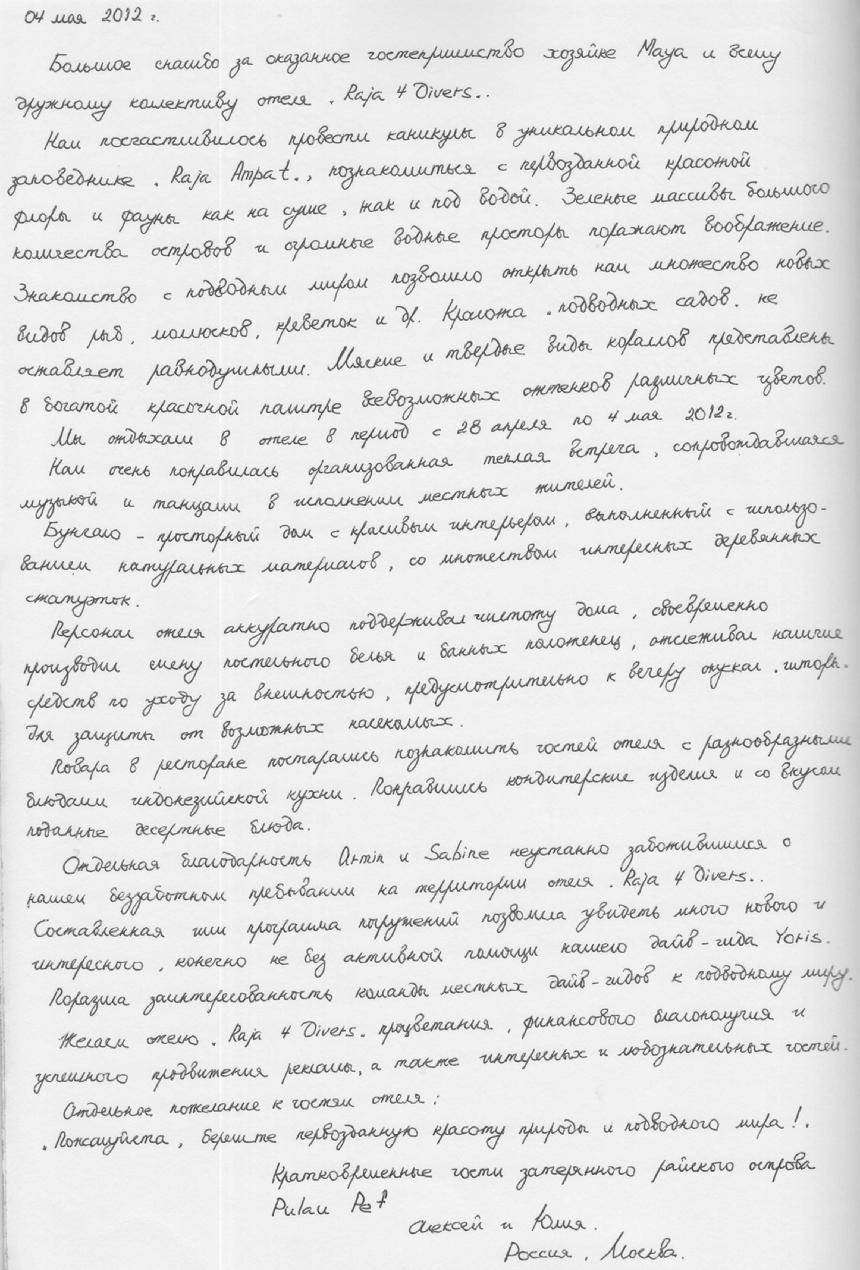 04 мая 2012 г.
Большое спасибо за оказанное гостеприимство хозяйке Maya и всему
дружному коллективу отеля "Raja 4 Divers".
Нам посчастливилось провести каникулы в уникальном природном
заповеднике "Raja Ampat", познакомиться с первозданной красотой
флоры и фауны как на суше, так и под водой. Зеленые массивы большого
количества островов и огромные водные просторы поражают воображение.
Знакомство с подводным миром позволило открыть нам множество новых
видов рыб, моллюсков, креветок и др. Красота "подводных садов" не
оставляет равнодушными. Мягкие и твердые виды кораллов представлены
в богатой красочной палитре всевозможных оттенков различных цветов.
Мы отдыхали в отеле в период с 28 апреля по 4 мая 2012г.
Нам очень понравилась организованная теплая встреча, сопровождавшаяся
музыкой и танцами в исполнении местных жителей.
Бунгало - просторный дом с красивым интерьером, выполненный с использо-
ванием натуральных материалов, со множеством интересных деревянных
статуэток.
Персонал отеля аккуратно поддерживал чистоту дома, своевременно
производил смену постельного белья и банных полотенец, отслеживал наличие
средств по уходу за внешностью, предусмотрительно к вечеру опускал "шторы"
для защиты от возможных насекомых.
Повара в ресторане постарались познакомить гостей отеля с разнообразными
блюдами индонезийской кухни. Понравились кондитерские изделия и со вкусом
поданные десертные блюда.
Отдельная благодарность Armin и Sabine неустанно заботившимся о
нашем беззаботном пребывании на территории отеля "Raja 4 Divers".
Составленная ими программа погружений позволила увидеть много нового и
интересного, конечно не без активной помощи нашего дайв-гида Yoris.
Поразила заинтересованность команды местных дайв-гидов к подводному миру.
Желаем отелю "Raja 4 Divers" процветания, финансового благополучия и
успешного продвижения рекламы, а также интересных и любознательных гостей.
Отдельное пожелание к гостям отеля:
"Пожалуйста, берегите первозданную красоту природы и подводного мира!"
Кратковременные гости затерянного райского острова
Pulau Pef
Алексей и Юлия.
Россия, Москва.